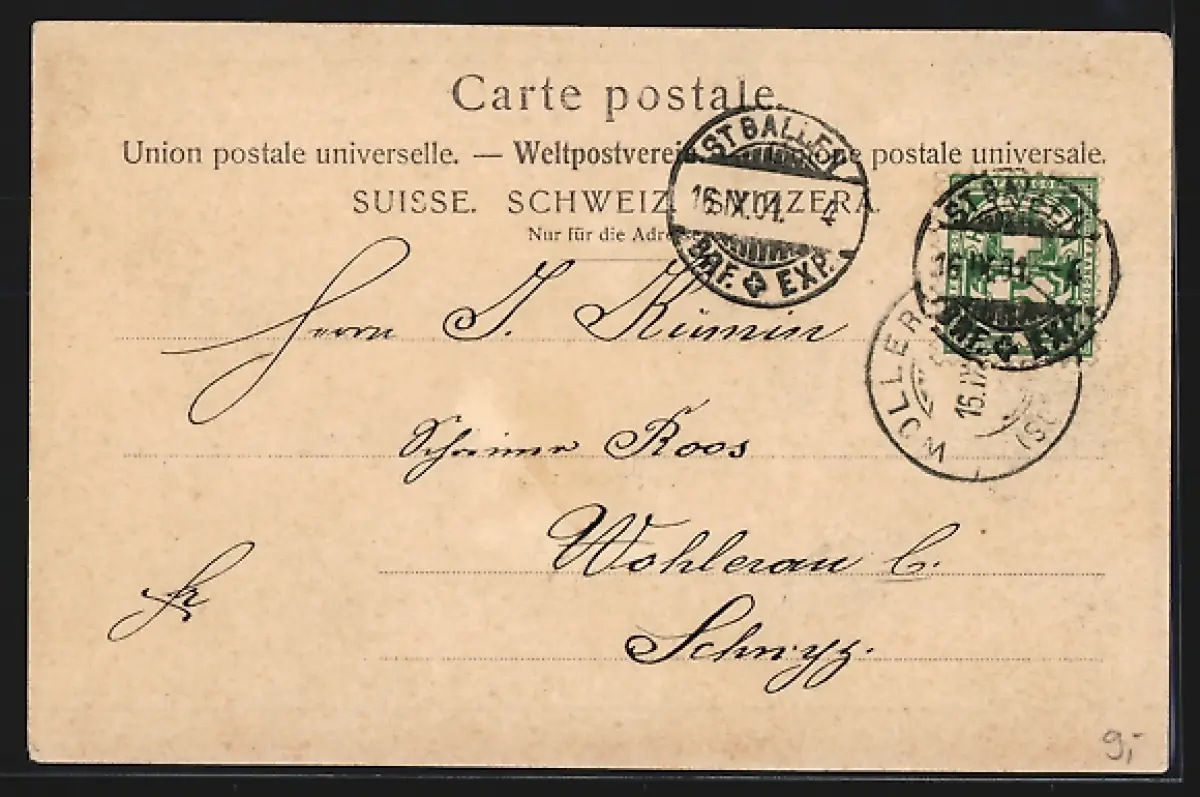 Carte postale.
Union postale universelle. — Weltpostverein. — Unione postale universale.
SUISSE. SCHWEIZ. SVIZZERA.
Nur für die Adresse
ST GALLEN
16.IX.01. 4
BRF. EXP.
ST GALLEN
16.IX.01. 4
BRF. EXP.
WOLLERAU
16.IX
Herrn J. Kümin
Roos
Wohlerau C.
Schwyz.
9,-